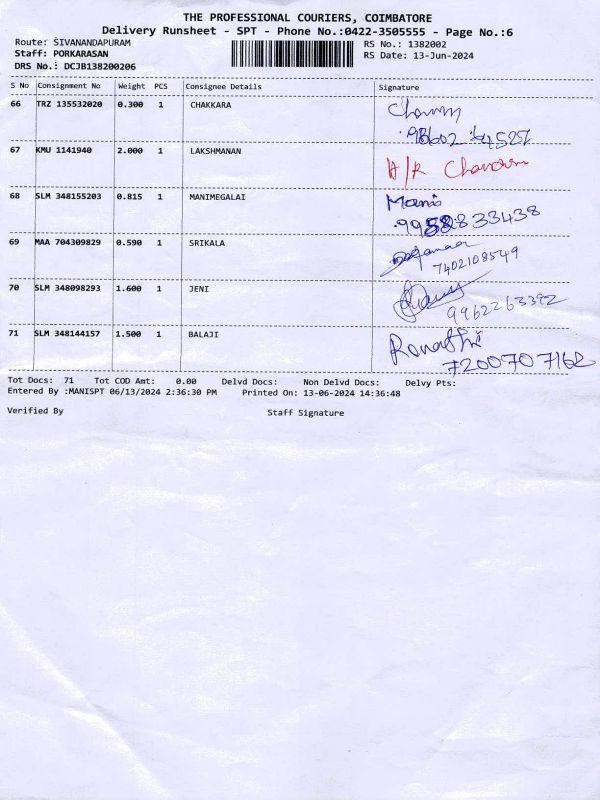 THE PROFESSIONAL COURIERS, COIMBATORE
Delivery Runsheet - SPT - Phone No.:0422-3505555 - Page No.:6
Route: SIVANANDAPURAM RS No.: 1382002
Staff: PORKARASAN RS Date: 13-Jun-2024
DRS No.: DCJB138200206
S No Consignment No Weight PCS Consignee Details Signature
66 TRZ 135532020 0.300 1 CHAKKARA
67 KMU 1141940 2.000 1 LAKSHMANAN
H/R
68 SLM 348155203 0.815 1 MANIMEGALAI Mani
69 MAA 704309829 0.590 1 SRIKALA
7402108549
70 SLM 348098293 1.600 1 JENI
9962263392
71 SLM 348144157 1.500 1 BALAJI
7200707162
Tot Docs: 71 Tot COD Amt: 0.00 Delvd Docs: Non Delvd Docs: Delvy Pts:
Entered By :MANISPT 06/13/2024 2:36:30 PM Printed On: 13-06-2024 14:36:48
Verified By Staff Signature